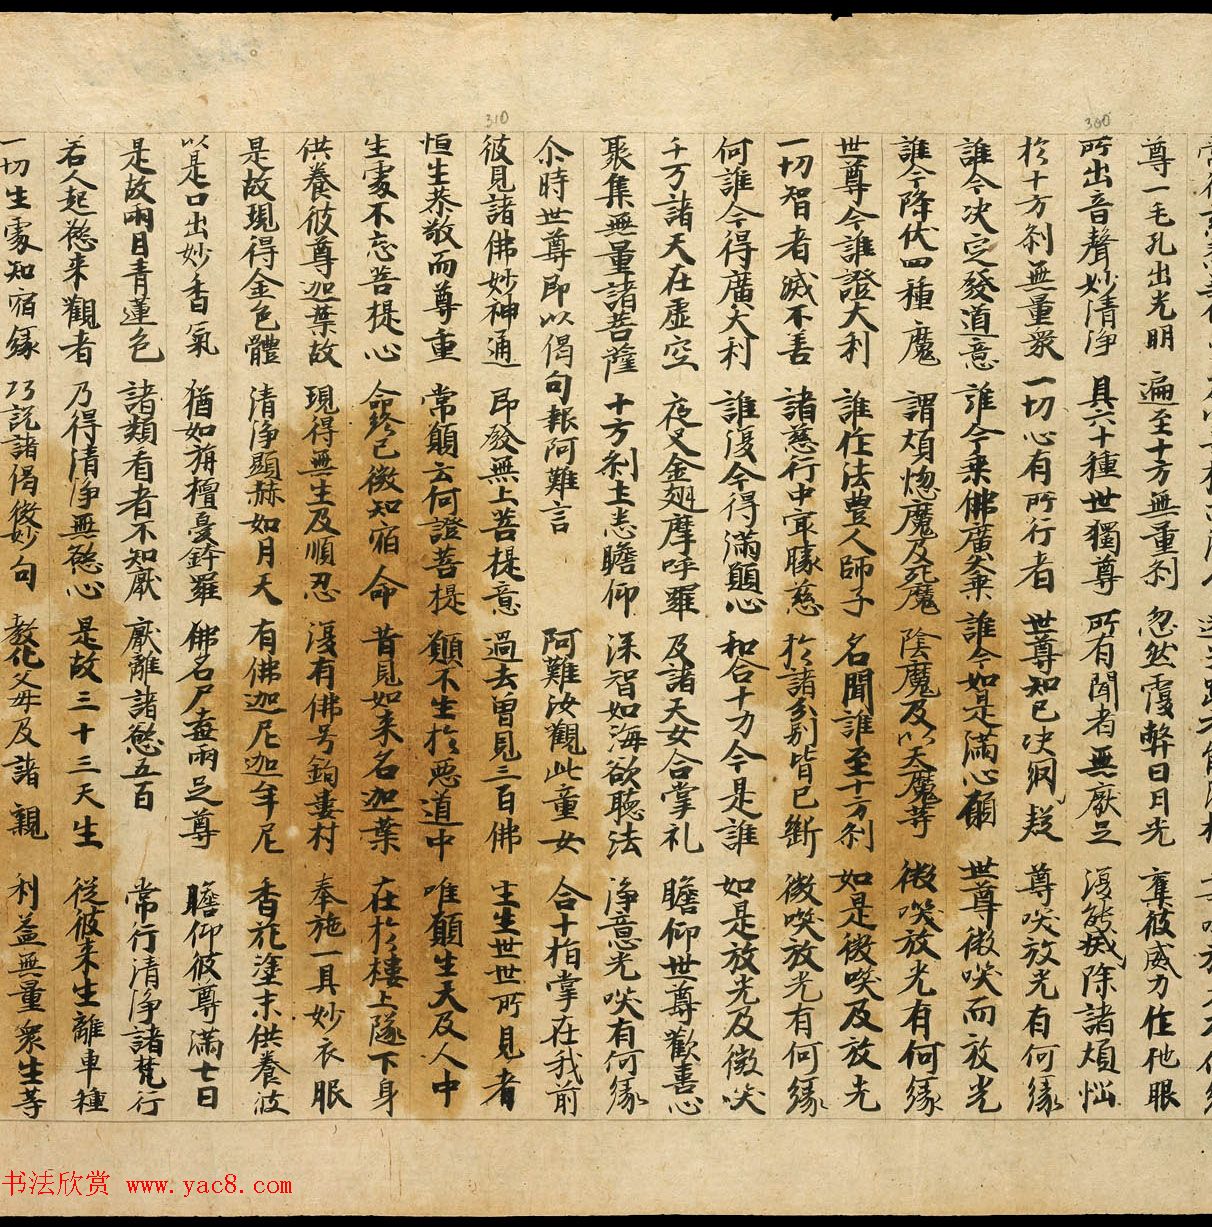 310
300
尊一毛孔出光明 遍至十方無量刹 忽然覆弊日月光 棄彼威力作他眼
所出音聲妙清淨 具六十種世獨尊 所有聞者無厭足 復能滅除諸煩惱
於十方刹無量衆 一切心有所行者 世尊知已决洞疑 尊咲放光有何緣
誰今决定發道意 誰今乘佛廣大乘 誰今如是滿心願 世尊微咲而放光
誰今降伏四種魔 謂煩惚魔及死魔 陰魔及以天魔等 微咲放光有何緣
世尊今誰證大利 誰作法豊人師子 名聞誰至十方刹 如是微咲及放光
一切智者滅不善 諸慈行中㝡勝慈 於諸分别皆已斷 微咲放光有何緣
何誰今得廣大利 誰復今得滿願心 和合十力今是誰 如是放光及微咲
千万諸天在虛空 夜叉金翅摩呼羅 及諸天女合掌礼 瞻仰世尊歡喜心
聚集無量諸菩薩 十方刹土悉瞻仰 深智如海欲聽法 淨意光咲有何緣
尒時世尊即以偈句報阿難言 阿難汝觀此童女 合十栢掌在我前
彼見諸佛妙神通 即發無上菩提意 過去曾見三百佛 生生世世所見者
恒生恭敬而尊重 常願云何證菩提 願不生於惡道中 唯願生天及人中
生處不忘菩提心 命終已後知宿命 昔見如來名迦葉 在於樓上隧下身
供養彼尊迦葉故 現得無生及順忍 復有佛号鉤婁村 奉施一具妙衣服
是故現得金色體 清淨顯赫如月天 有佛迦尼迦牟尼 香花塗末供養彼
以是口出妙香氣 猶如旃檀憂鉢羅 佛名尸棄兩足尊 瞻仰彼尊滿七日
是故兩目青蓮色 諸類看者不知厭 厭離諸慾五百 常行清淨諸梵行
若人起慾來觀者 乃得清淨無慾心 是故三十三天生 從彼來生離車種
一切生處知宿緣 巧說諸偈微妙句 教化父母及諸親 利益無量衆生等
书法欣赏 www.yac8.com